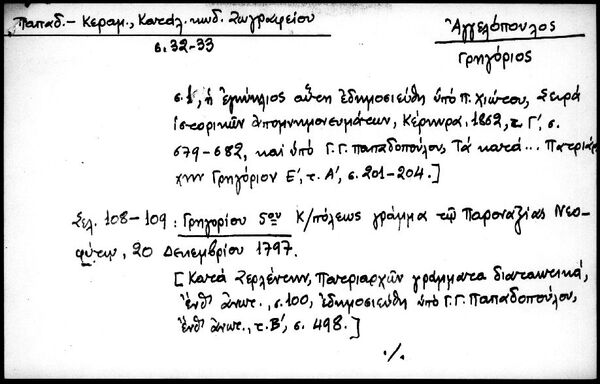 Παπαδ. - Κεραμ., Κατάλ. κωδ. Ζωγραφείου
Ἀγγελόπουλος
σ. 32-33
Γρηγόριος
σ. 1, ἡ ἐγκύκλιος αὕτη ἐδημοσιεύθη ὑπό Π. Χιώτου, Σειρά
ἱστορικῶν ἀπομνημονευμάτων, Κέρκυρα, 1862, τ. Γ', σ.
679-682, καί ὑπό Γ. Γ. Παπαδοπούλου, Τά κατά... Πατριάρ
χην Γρηγόριον Ε', τ. Α', σ. 201-204.]
Σελ. 108-109: Γρηγορίου 5ου Κ/πόλεως γράμμα τῷ Παροναξίας Νεο-
φύτῳ, 20 Δεκεμβρίου 1797.
[Κατά Ζερλέντην, Πατριαρχῶν γράμματα διαταικτικά,
ἔνθ' ἄνωτ., σ. 100, ἐδημοσιεύθη ὑπό Γ. Γ. Παπαδοπούλου,
ἔνθ' ἄνωτ., τ. Β', σ. 498.]
./.